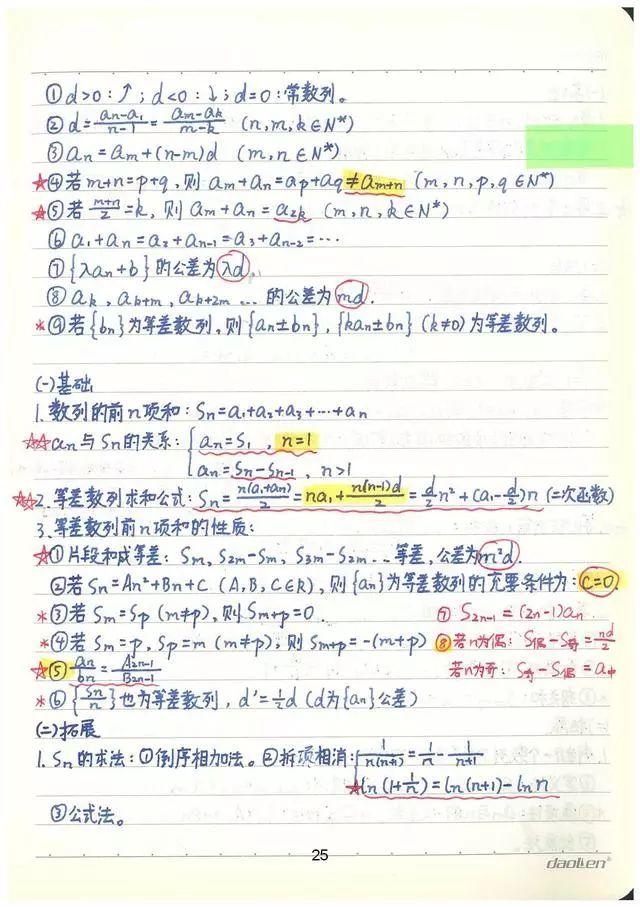 ① d>0:↑;d<0:↓;d=0:常数列。
② d=(an-a1)/(n-1)=(am-ak)/(m-k) (n,m,k∈N*)
③ an=am+(n-m)d (m,n∈N*)
☆④若m+n=p+q,则 am+an=ap+aq≠am+n (m,n,p,q∈N*)
☆⑤若(m+n)/2=k,则 am+an=a2k (m,n,k∈N*)
⑥ a1+an=a2+an-1=a3+an-2=…
⑦{λan+b}的公差为λd.
⑧ ak, ak+m, ak+2m …的公差为md.
*⑨若{bn}为等差数列,则{an±bn},{kan±bn}(k≠0)为等差数列。
(一)基础
1.数列的前n项和:Sn=a1+a2+a3+…+an
☆☆an与Sn的关系:{an=S1, n=1
an=Sn-Sn-1, n>1
☆☆2.等差数列求和公式:Sn=n(a1+an)/2=na1+n(n-1)d/2=d/2n²+(a1-d/2)n (二次函数)
3.等差数列前n项和的性质:
☆①片段和成等差:Sm, S2m-Sm, S3m-S2m…等差,公差为m²d.
②若Sn=An²+Bn+C (A,B,C∈R),则{an}为等差数列的充要条件为:C=0.
*③若Sm=Sp (m≠p),则Sm+p=0 ⑦ S2n-1=(2n-1)an
*④若Sm=p,Sp=m (m≠p),则Sm+p=-(m+p) ⑧若n为偶:S偶-S奇=nd/2
☆⑤ an/bn=A2n-1/B2n-1 若n为奇:S奇-S偶=a中
*⑥{Sn/n}也为等差数列,d'=1/2d (d为{an}公差)
(二)拓展
1.Sn的求法:①倒序相加法。②拆项相消:{1/n(n+1)=1/n-1/(n+1)
☆ln(1+1/n)=ln(n+1)-ln n
③公式法。
25
daolen®